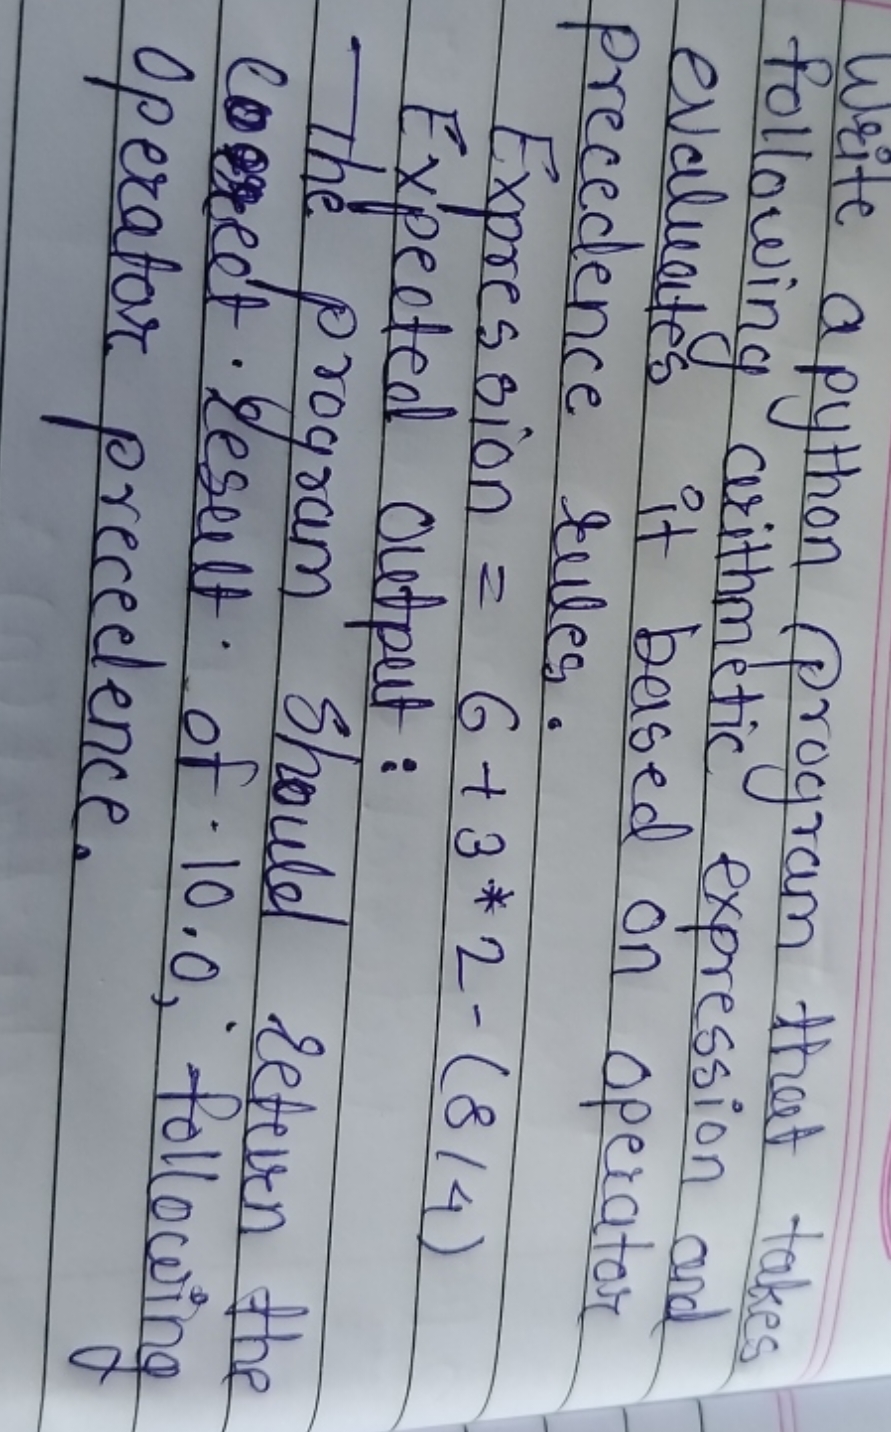 Write a python program that takes
following arithmetic expression and
evaluates it based on operator
precedence rules.
Expression = 6 + 3 * 2 - (8/4)
Expected Output:
The program should return the
correct result of 10.0, following
operator precedence.